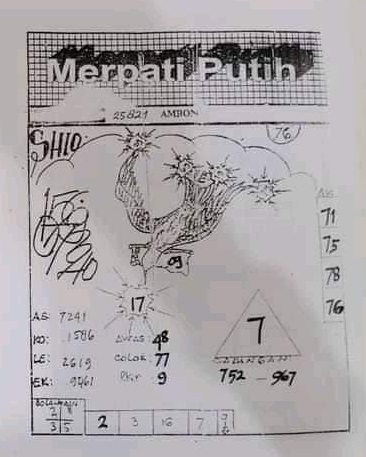 Merpati Putih
25821 AMBON
76
SHIO
09
71
75
78
76
17
7
AS: 7241
KO: 1586
LE: 2619
EK: 9461
AWAS: 48
COLOK: 77
PKR: 9
752 - 967
2 8
3 5
2 3 16 7